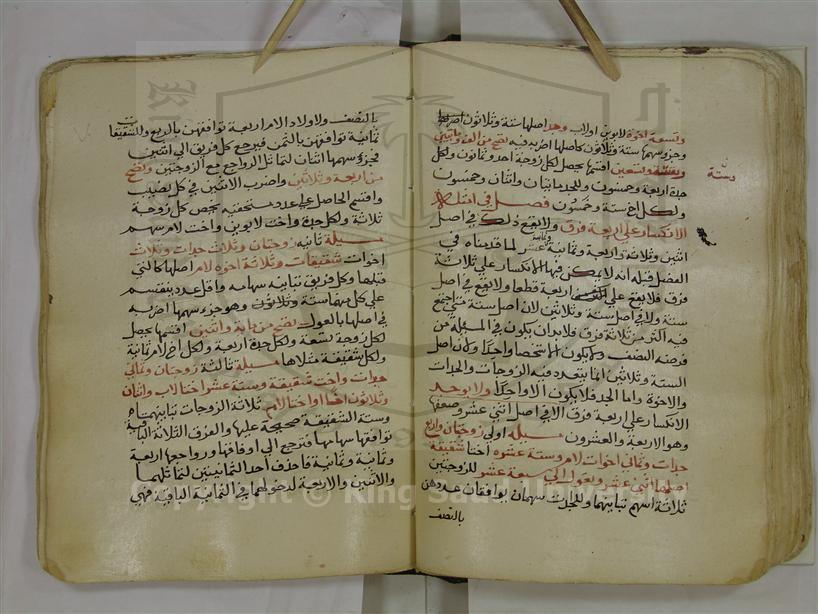 وتسعة اخوة لابوين اولاب وجد اصلها ستة وثلاثون
وجزو سهمها ستة وثلاثون كاصلها اضربه فيه تصح من الف ومايتين
وستة وتسعين اقسمها يحصل لكل زوجة احد وثمانون ولكل
جدة اربعة وخمسون وللجد مايتان واثنتان وخمسون
ولكل اخ ستة وخمسون فصل في
الانكسار على اربعة فرق ولا يقع ذلك في اصل
اثنين وثلاثة واربعة وثمانية وثمانية عشر لما قدمناه في
الفصل قبله انه لا يمكن فيها الانكسار على ثلاثة
فرق فلا يقع على اربعة قطعا ولا يقع في اصل
ستة ولا في اصل ستة وثلاثين لان اصل ستة متى اجتمع
فيه اكثر من ثلاثة فرق فلا بد ان يكون في المسئلة من
فرضه النصف ولا يكون الا شخصا واحدا ولان اصل
الستة وثلاثين انما يتعدد فيه الزوجات والجدات
والاخوة واما الجد فلا يكون الا واحدا ولا يوجد
الانكسار على اربعة فرق الا في اصل اثني عشر وضعفها
وهو الاربعة والعشرون مسيلة اولى زوجتان واربع
جدات وثماني اخوات لام وستة عشرة اختا شقيقة
اصلها اثني عشر وتعول الى سبعة عشر للزوجتين
ثلاثة اسهم تباينهما وللجدات سهمان يوافقان عددهن
بالنصف
بالنصف ولاولاد الام اربعة توافقهن بالربع وللشقيقات
ثمانية توافقهن بالثمن فيرجع كل فريق الى اثنين
فجزو سهمها اثنان لتماثل الرواجع مع الزوجتين وتصح
من اربعة وثلاثين واضرب الاثنين في كل نصيب
واقسم الحاصل على عدد مستحقيه يخص كل زوجة
ثلاثة ولكل جدة واخت لابوين واخت لام سهم
مسيلة ثانية زوجتان وثلاث جدات وثلاث
اخوات شقيقات وثلاثة اخوه لام اصلها كالتي
قبلها وكل فريق تباينه سهامه واقل عدد ينقسم
على كل منها ستة وهو جزء سهمها اضربه
في اصلها بالعول تصح من ماية واثنين اقسمها يحصل
لكل زوجة تسعة ولكل جدة اربعة ولكل اخ لام ثمانية
ولكل شقيقة مثلاها مسيلة ثالثة زوجتان وثماني
جدات واخت شقيقة وستة عشر اختا لاب واثنان
وثلاثون اختا لام ثلاثة الزوجات تباينهما
وستة الشقيقة صحيحة عليها والفرق الثلاثة الباقية
توافقها سهامها فترجع الى اوفاقها ورواجعها اربعة
وثمانية وثمانية فاحذف احد الثمانيتين لتماثلهما
والاثنين والاربعة لدخولهما في الثمانية الباقية فهي
Copyright © King Saud University